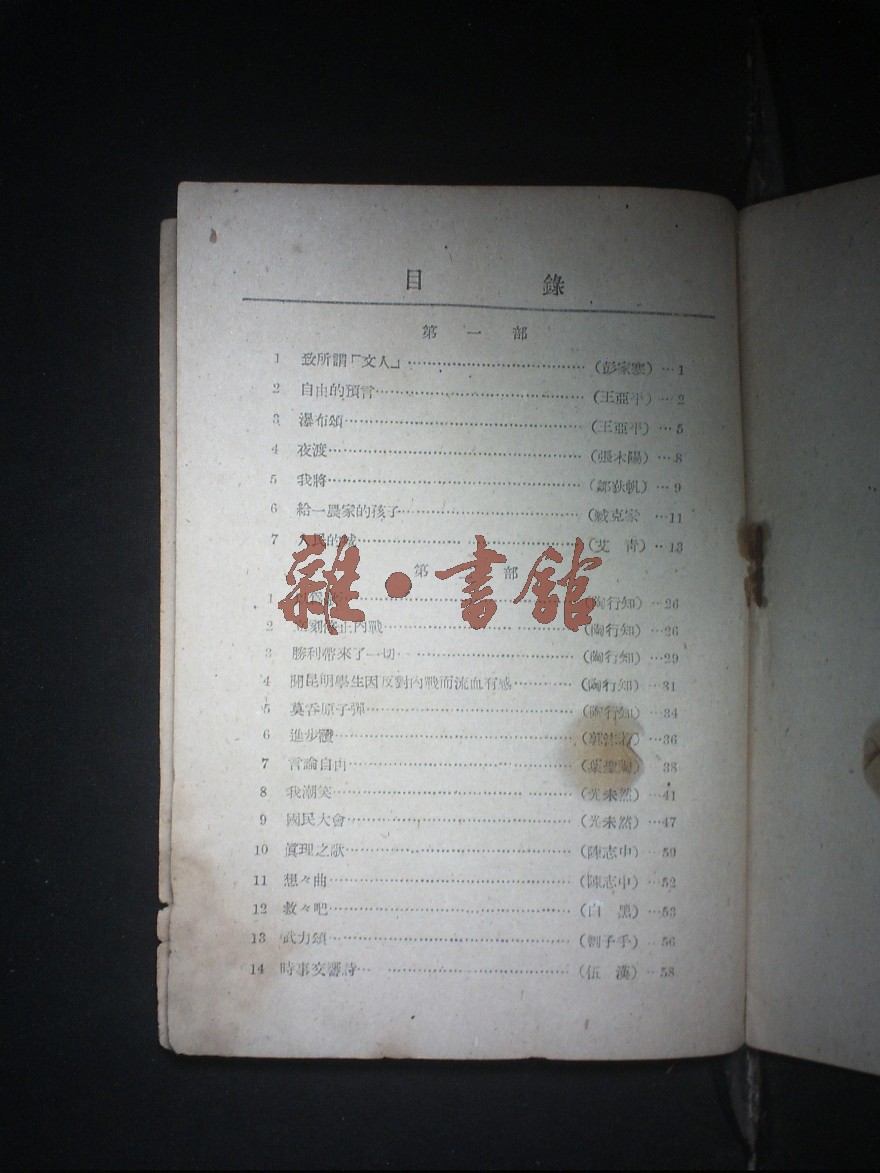 目 錄
第 一 部
1 致所謂「文人」……(彭家寒)…1
2 自由的預言……(王亞平)…2
3 瀑布頌……(王亞平)…5
4 夜渡……(張木陽)…8
5 我將……(鄒荻帆)…9
6 給一農家的孩子……(臧克家 …11
7 人民的城……(艾 青)…13
第 部
雜·書館
1 (陶行知)…26
2 立刻停止內戰……(陶行知)…26
3 勝利帶來了一切……(陶行知)…29
4 聞昆明學生因反對內戰而流血有感……(陶行知)…31
5 莫吞原子彈……(陶行知)…34
6 進步讚……(郭沫若)…36
7 言論自由……(葉聖陶) 38
8 我潮笑……(光未然)…41
9 國民大會……(光未然)…47
10 眞理之歌……(陳志中)…50
11 想々曲……(陳志中)…52
12 救々吧……(白 黑)…53
13 武力頌……(劉予手) 56
14 時事交響詩……(伍 漢)…58